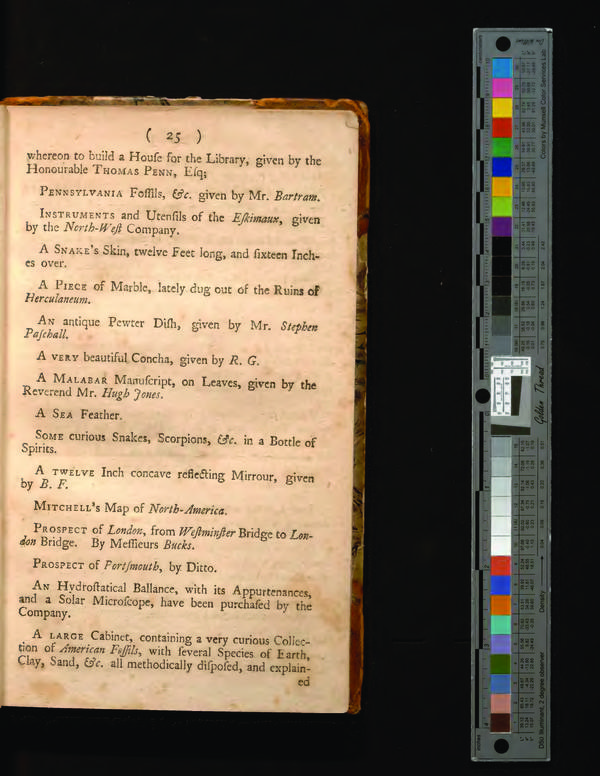 ( 25 )
whereon to build a Houſe for the Library, given by the
Honourable THOMAS PENN, Eſq;
PENNSYLVANIA Foſſils, &c. given by Mr. Bartram.
INSTRUMENTS and Utenſils of the Eſkimaux, given
by the North-Weſt Company.
A SNAKE's Skin, twelve Feet long, and ſixteen Inch-
es over.
A PIECE of Marble, lately dug out of the Ruins of
Herculaneum.
AN antique Pewter Diſh, given by Mr. Stephen
Paſchall.
A VERY beautiful Concha, given by R. G.
A MALABAR Manuſcript, on Leaves, given by the
Reverend Mr. Hugh Jones.
A SEA Feather.
SOME curious Snakes, Scorpions, &c. in a Bottle of
Spirits.
A TWELVE Inch concave reflecting Mirrour, given
by B. F.
MITCHELL's Map of North-America.
PROSPECT of London, from Weſtminſter Bridge to Lon-
don Bridge. By Meſſieurs Bucks.
PROSPECT of Portſmouth, by Ditto.
AN Hydroſtatical Ballance, with its Appurtenances,
and a Solar Microſcope, have been purchaſed by the
Company.
A LARGE Cabinet, containing a very curious Collec-
tion of American Foſſils, with ſeveral Species of Earth,
Clay, Sand, &c. all methodically diſpoſed, and explain-
ed
Colors by Munsell Color Services Lab
Golden Thread
Density
D50 Illuminant, 2 degree observer